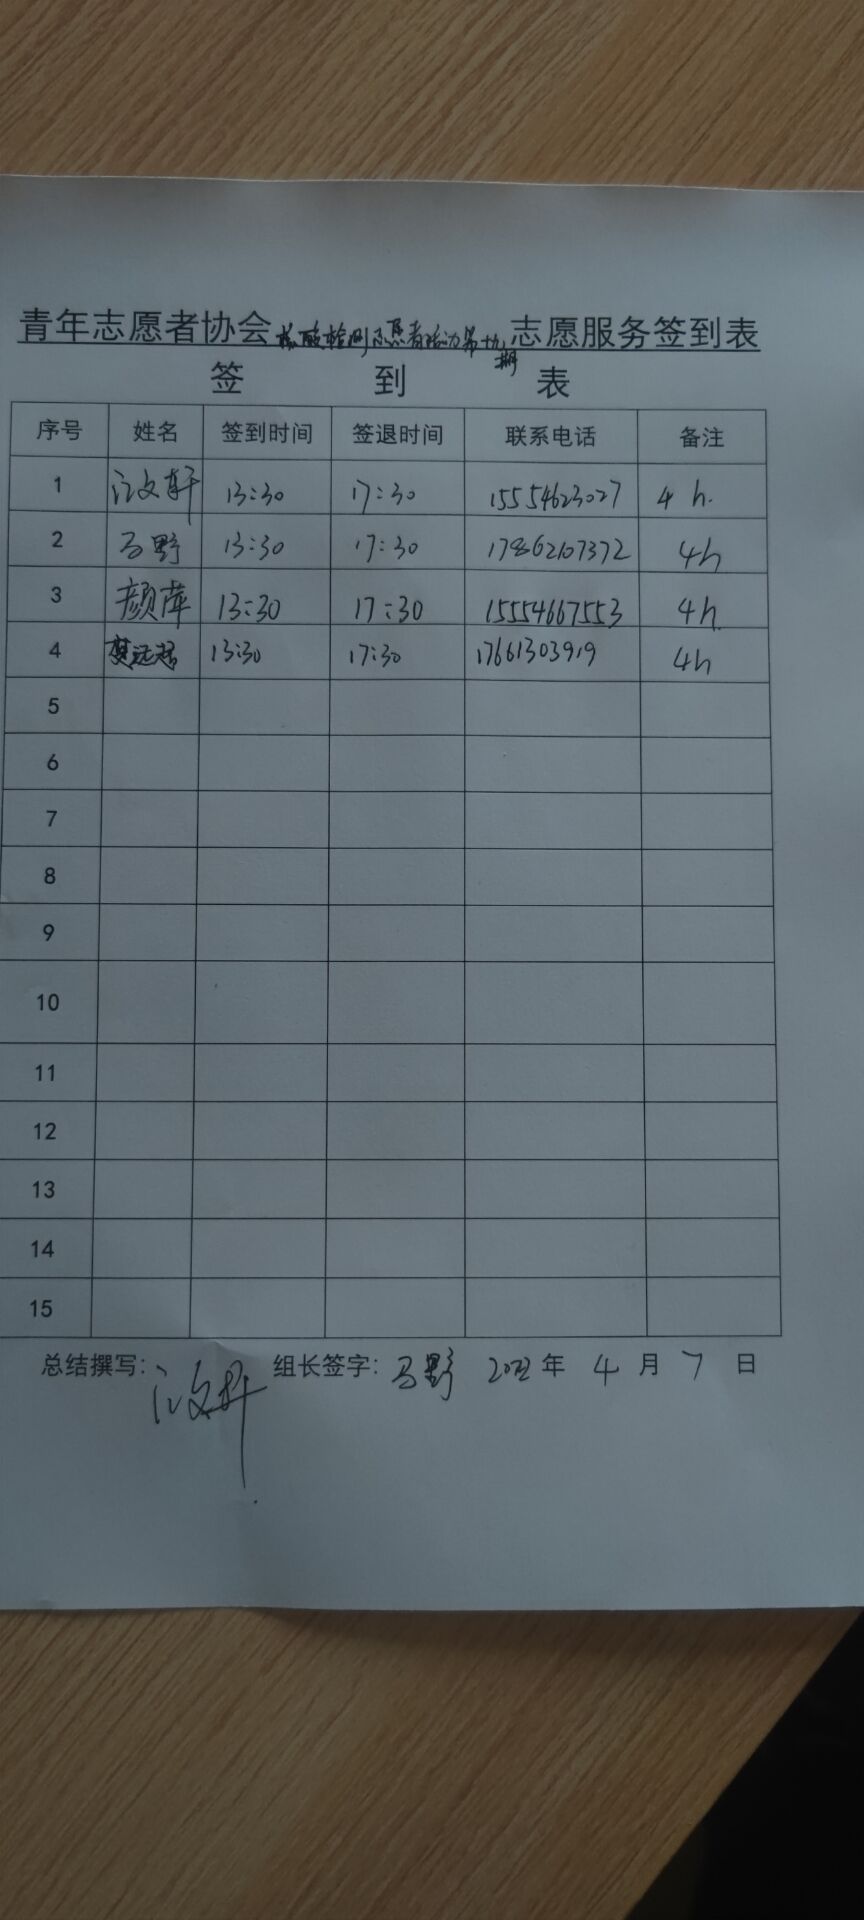 青年志愿者协会核酸检测志愿者活动第九期志愿服务签到表
签 到 表
序号 姓名 签到时间 签退时间 联系电话 备注
1 江文轩 13:30 17:30 15554623027 4 h.
2 马野 13:30 17:30 17862107372 4h
3 颜萍 13:30 17:30 15554667553 4h
4 13:30 17:30 17661303919 4h
5
6
7
8
9
10
11
12
13
14
15
总结撰写:江文轩 组长签字:马野 年 4 月 7 日